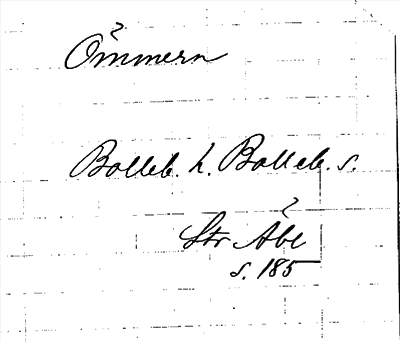 Ömmern
Bolleb. h. Bolleb. s.
Str Åbl
s. 185